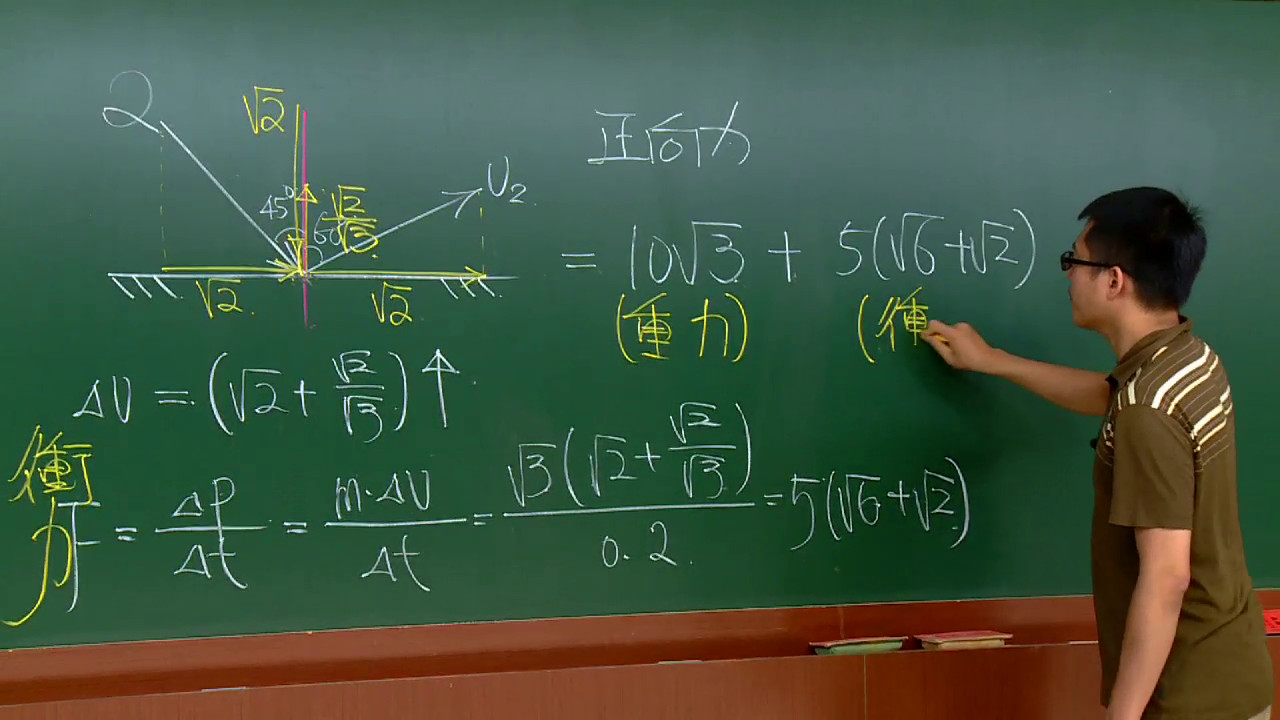 2
√2
45° √2/√3 U₂
60°
√2 √2
正向力
= 10√3 + 5(√6+√2)
(重力) (衝
ΔU = (√2 + √2/√3)↑
衝力
F = Δp/Δt = m·ΔU/Δt = √3(√2 + √2/√3)/0.2 = 5(√6+√2)